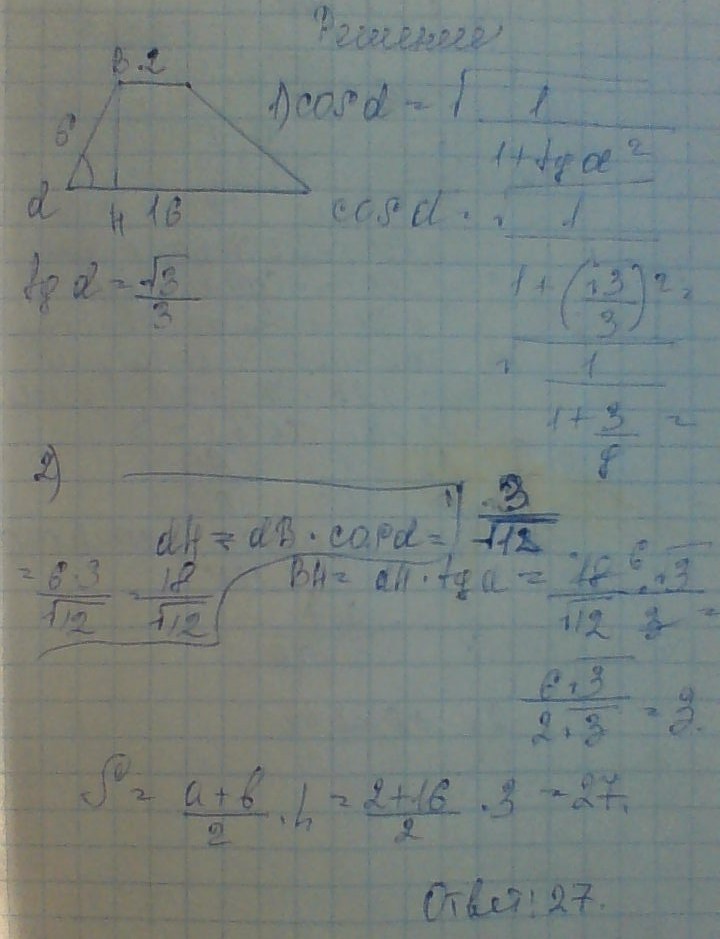 Решение
B 2
6
α H 16
tg α = √3/3
1) cos α = √ 1/(1+tg α²)
cos α = √ 1/(1+(√3/3)²) =
= 1/(1+3/9) =
2) 3/√12
αH = αB · cos α =
= 6·3/√12 = 18/√12
BH = αH · tg α = 18/√12 · √3/3 =
6√3/2√3 = 3.
S = a+b/2 · h = 2+16/2 · 3 = 27.
Ответ: 27.